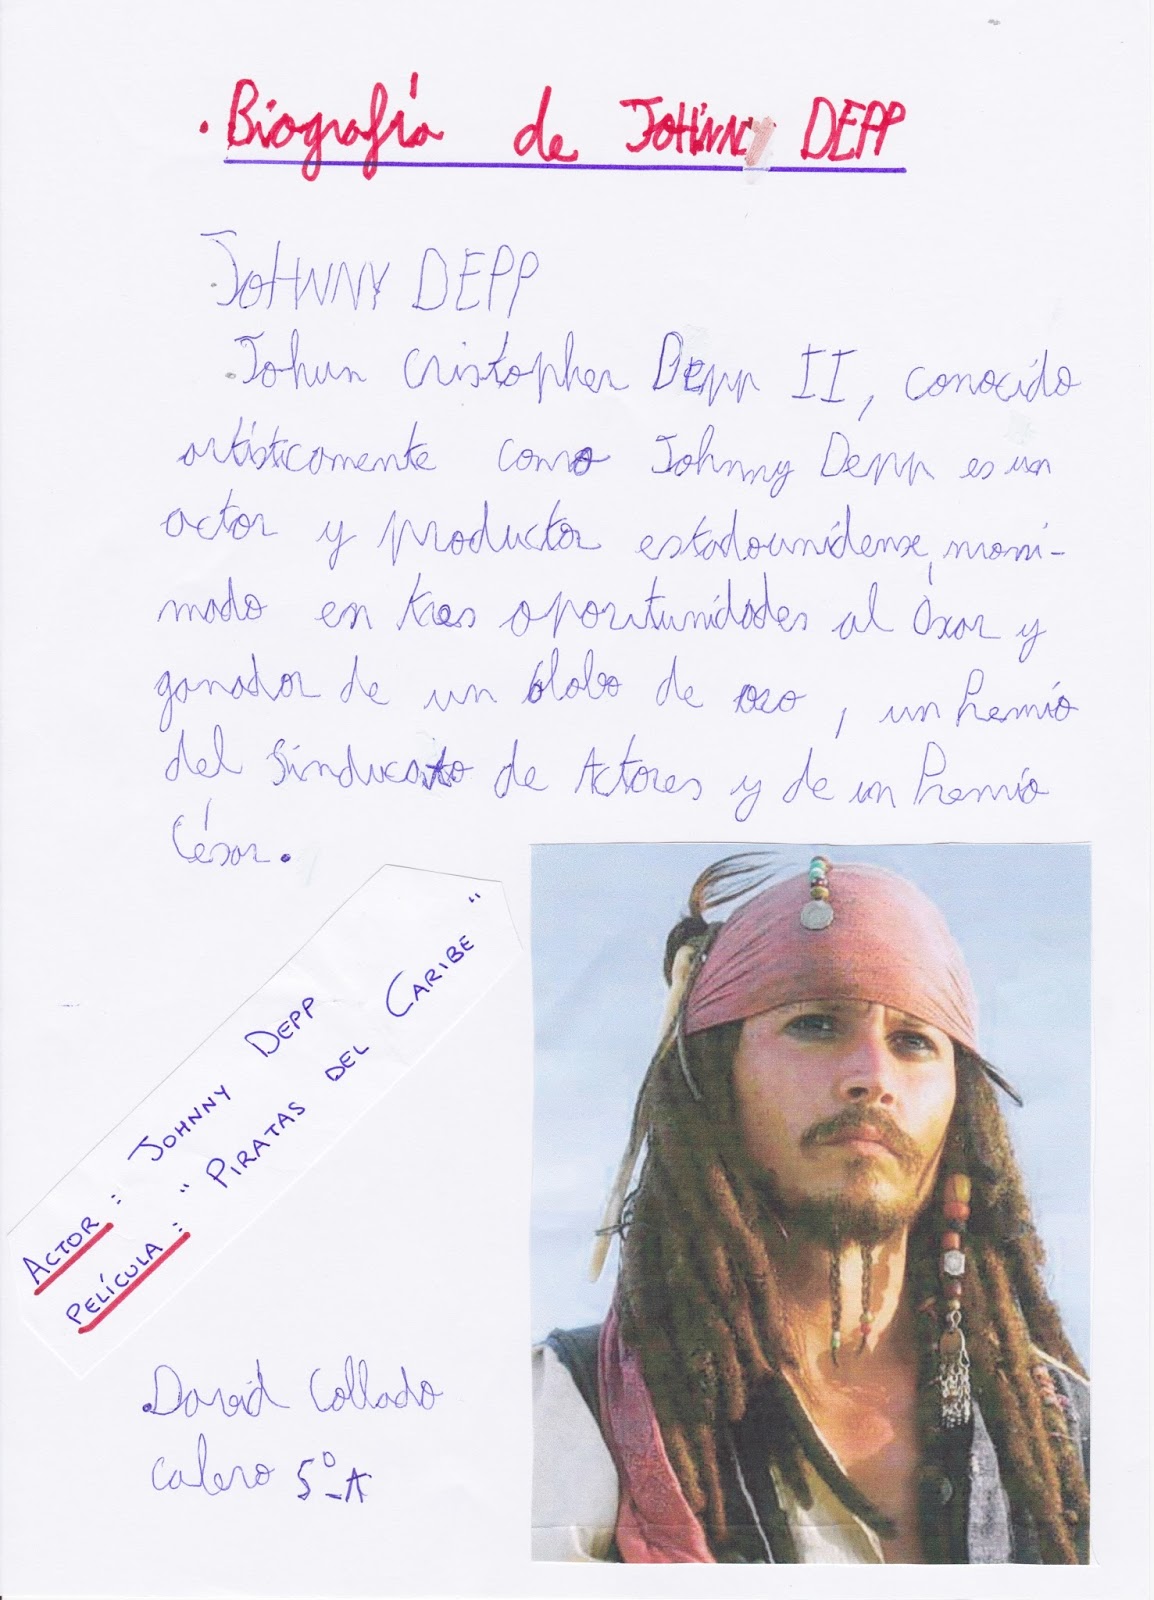 . Biografía de JOHNNY DEPP
JOHNNY DEPP
Johun Cristopher Depp II, conocido
artísticamente como Johnny Depp es un
actor y productor estadounidense, nomi-
nado en tres oportunidades al Óxar y
ganador de un Globo de oro, un Premio
del Sinducato de Actores y de un Premio
César.
ACTOR: JOHNNY DEPP
PELÍCULA: "PIRATAS DEL CARIBE"
David Collado
Calero 5º-A